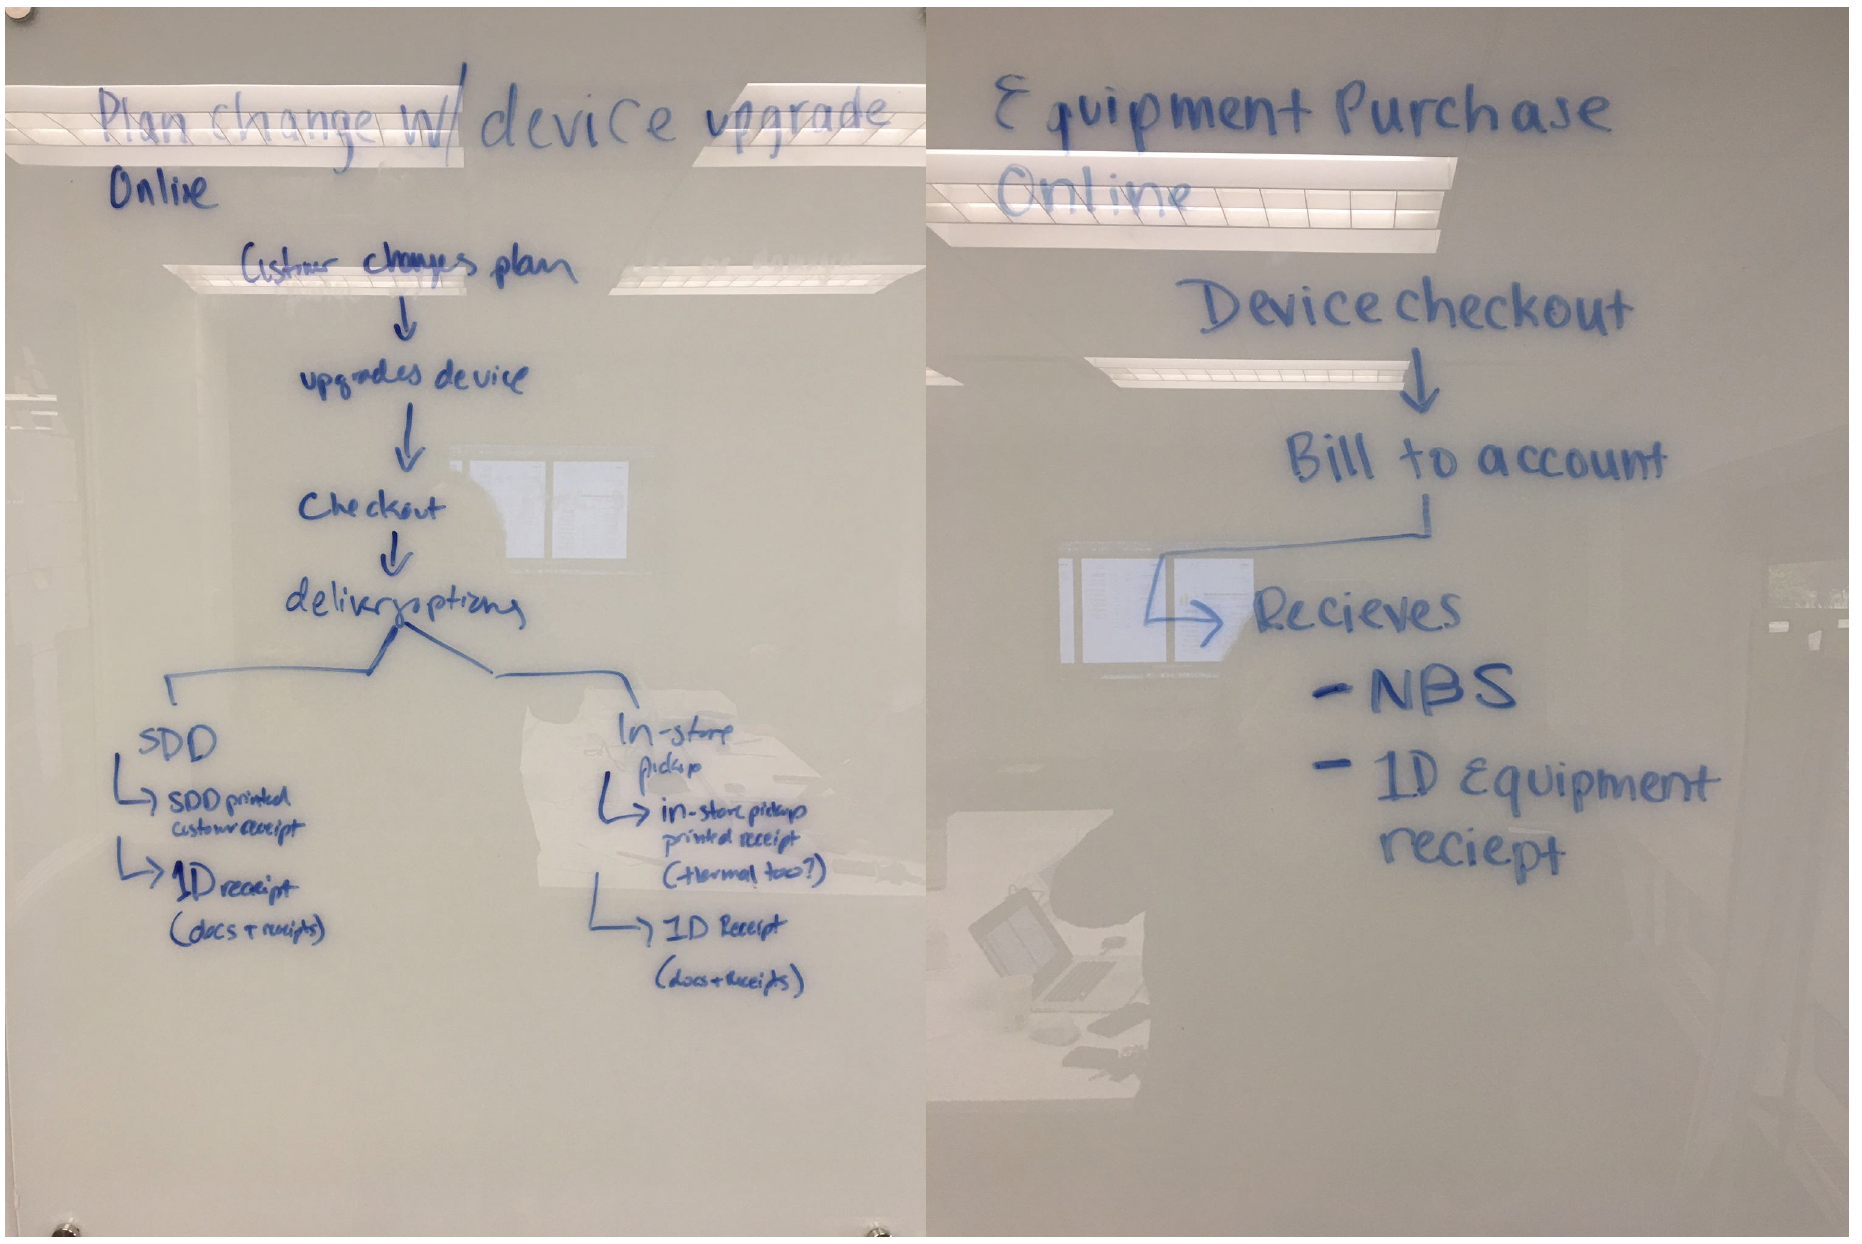 Plan change w/ device upgrade
Online
Customer changes plan
upgrades device
Checkout
delivery options
SDD
SDD printed
customer receipt
1D receipt
(docs + receipts)
In-store
pickup
in-store pickup
printed receipt
(thermal too?)
1D Receipt
(docs + receipts)
Equipment Purchase
Online
Device checkout
Bill to account
Recieves
- NBS
- 1D Equipment
reciept